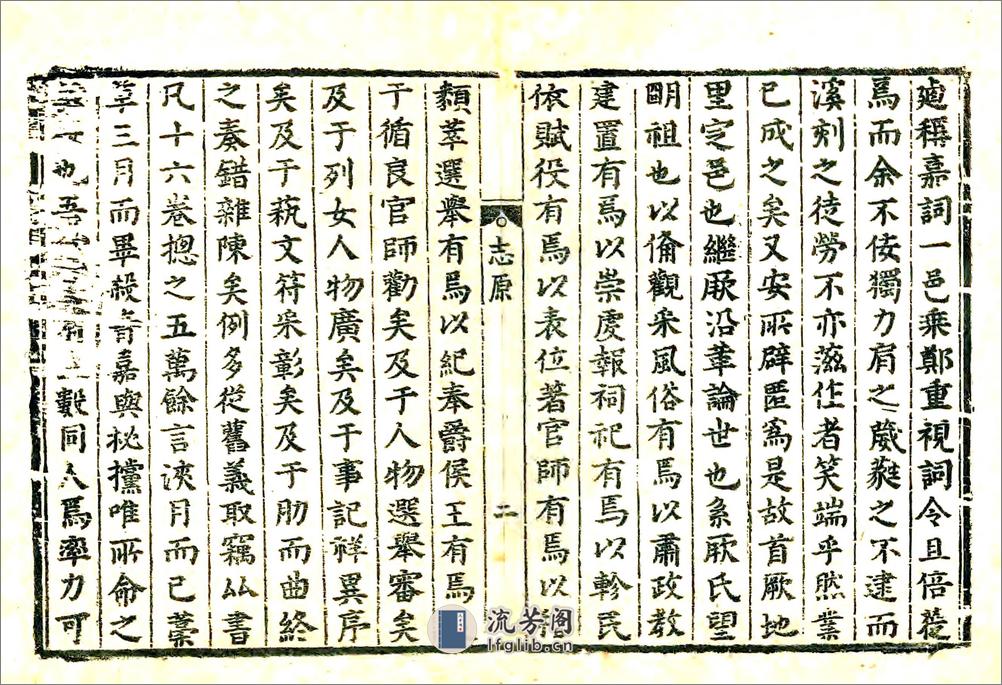 逌稱嘉詞一邑乘鄭重視詞令且倍蓰
焉而余不佞獨力肩之蕆蕤之不逮而
溪刻之徒勞不亦滋作者笑端乎然業
已成之矣又安所辟匿焉是故首厥地
里定邑也繼厥沿革論世也系厥氏望
明祖也以俻觀采風俗有焉以肅政教
建置有焉以崇虔報祠祀有焉以軫民
依賦役有焉以表位著官師有焉以
志原
二
類萃選舉有焉以紀奉爵侯王有焉
于循良官師勸矣及于人物選舉審矣
及于列女人物廣矣及于事記祥異序
矣及于藝文符采彰矣及于肋而曲終
之奏錯雜陳矣例多從舊義取竊以書
凡十六卷摠之五萬餘言浹月而已葉
草三月而畢殺青嘉與秘攩唯所命之
也吾
轂同人焉率力可
流芳阁
lfglib.cn